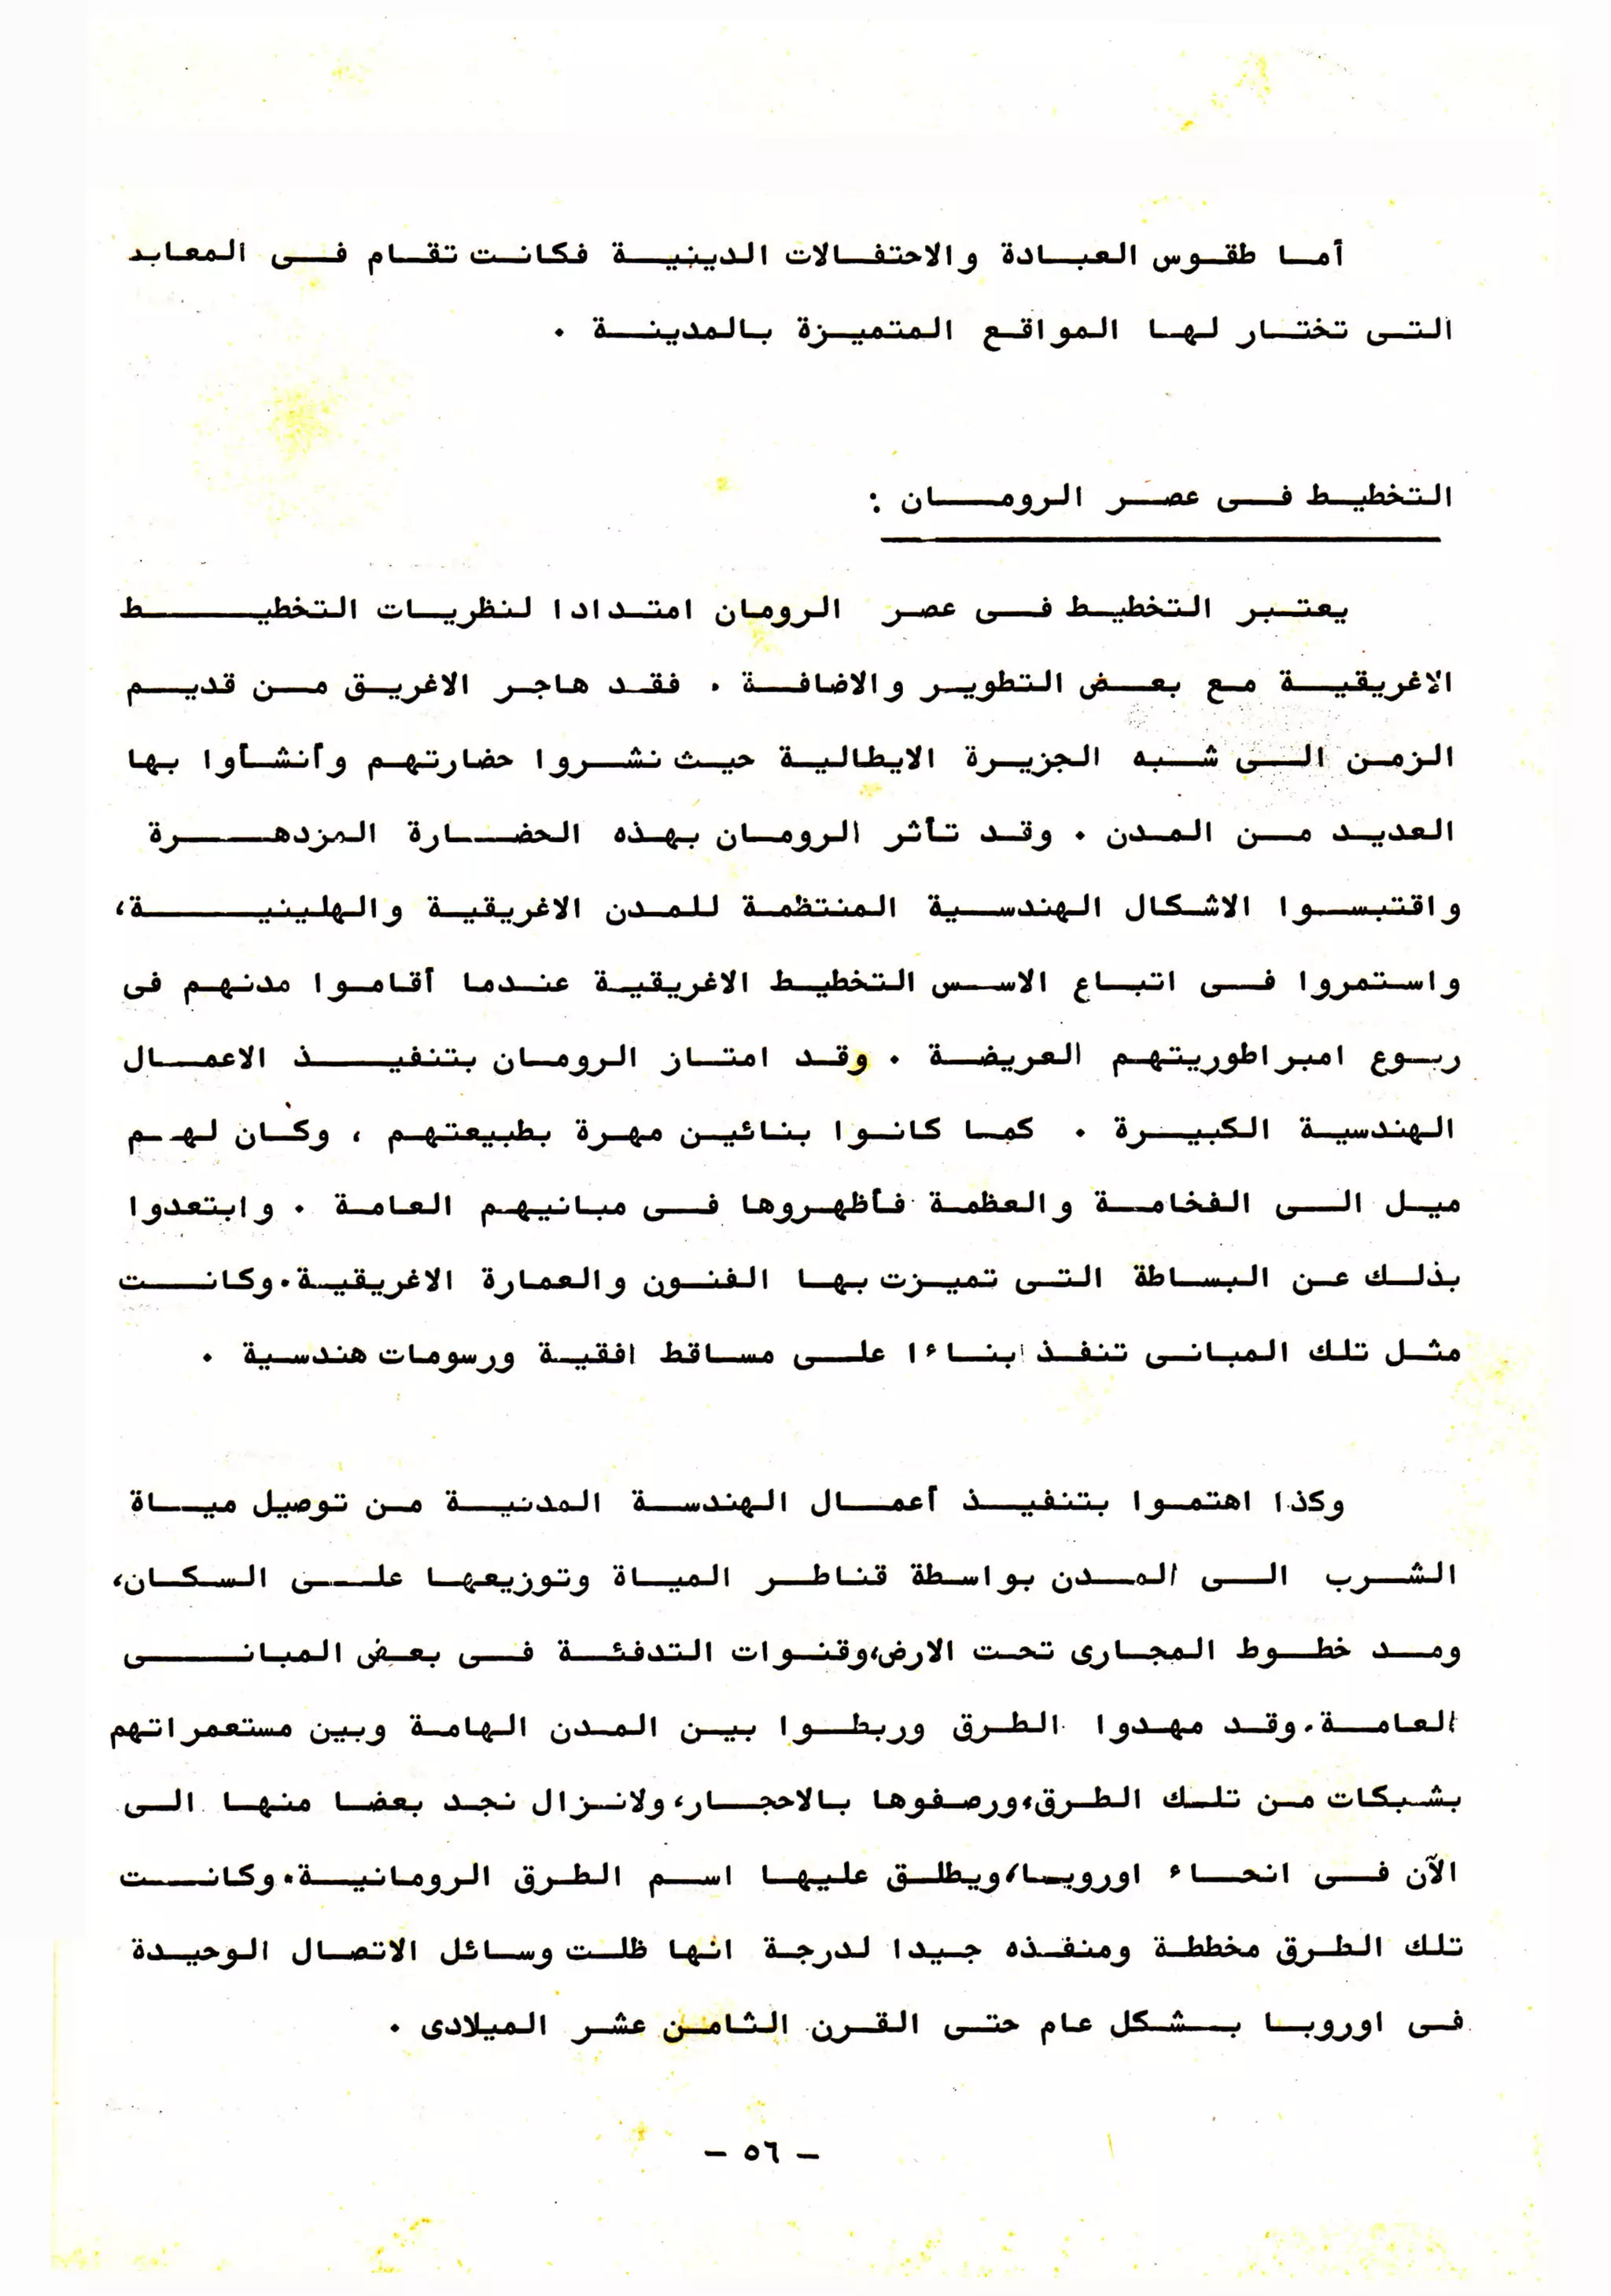 أما طقوس العبادة والاحتفالات الدينية فكانت تقام فى المعابد
التى تختار لها المواقع المتميزة بالمدينة .
التخطيط فى عصر الرومان :
يعتبر التخطيط فى عصر الرومان امتدادا لنظريات التخطيط
الاغريقية مع بعض التطوير والاضافة . فقد هاجر الاغريق من قديم
الزمن الى شبه الجزيرة الايطالية حيث نشروا حضارتهم وأنشأوا بها
العديد من المدن . وقد تأثر الرومان بهذه الحضارة المزدهرة
واقتبسوا الاشكال الهندسية المنتظمة للمدن الاغريقية والهلينية،
واستمروا فى اتباع الاسس التخطيط الاغريقية عندما أقاموا مدنهم فى
ربوع امبراطوريتهم العريضة . وقد امتاز الرومان بتنفيذ الاعمال
الهندسية الكبيرة . كما كانوا بنائين مهرة بطبيعتهم ، وكان لهم
ميل الى الفخامة والعظمة فأظهروها فى مبانيهم العامة . وابتعدوا
بذلك عن البساطة التى تميزت بها الفنون والعمارة الاغريقية.وكانت
مثل تلك المبانى تنفذ ابناءا على مساقط افقية ورسومات هندسية .
وكذا اهتموا بتنفيذ أعمال الهندسة المدنية من توصيل مياة
الشرب الى المدن بواسطة قناطر المياة وتوزيعها على السكان،
ومد خطوط المجارى تحت الارض،وقنوات التدفئة فى بعض المبانى
العامة.وقد مهدوا الطرق وربطوا بين المدن الهامة وبين مستعمراتهم
بشبكات من تلك الطرق،ورصفوها بالاحجار،ولانزال نجد بعضا منها الى
الآن فى انحاء اوروبا،ويطلق عليها اسم الطرق الرومانية.وكانت
تلك الطرق مخططة ومنفذه جيدا لدرجة انها ظلت وسائل الاتصال الوحيدة
فى اوروبا بشكل عام حتى القرن الثامن عشر الميلادى .
- ٥٦ -